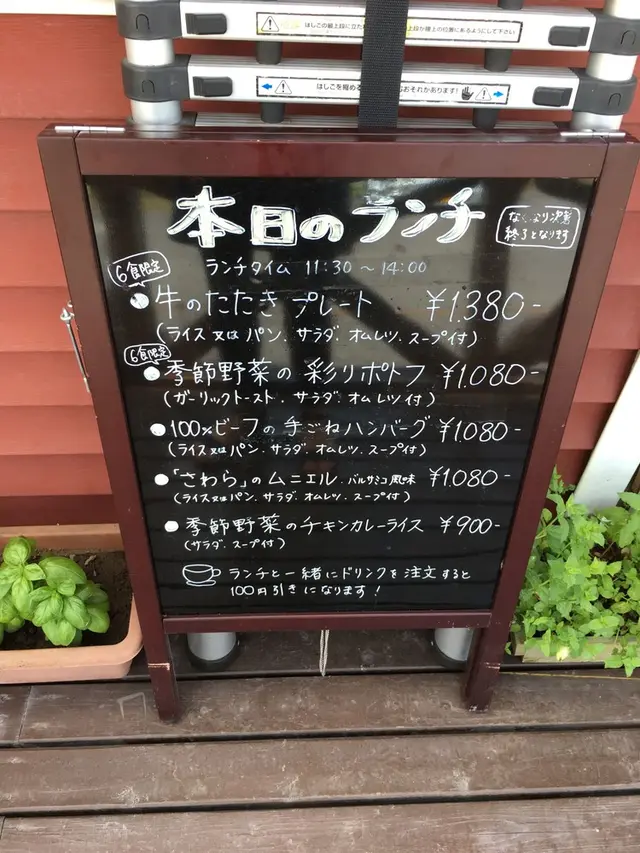 本日のランチ
なくなり次第
終了となります
ランチタイム 11:30 〜 14:00
6食限定
牛のたたき プレート ¥1.380-
(ライス 又は パン、サラダ、オムレツ、スープ付)
6食限定
季節野菜の 彩りポトフ ¥1.080-
(ガーリックトースト、サラダ、オムレツ付)
100%ビーフの手ごねハンバーグ ¥1.080-
(ライス又はパン、サラダ、オムレツ、スープ付)
「さわら」のムニエル バルサミコ風味 ¥1.080-
(ライス又はパン、サラダ、オムレツ、スープ付)
季節野菜のチキンカレーライス ¥900-
(サラダ、スープ付)
ランチと一緒にドリンクを注文すると
100円引きになります!
はしごの最上段に立た
上段から
の位置にあるようにして下さい
はしごを縮める
おそれがあります!